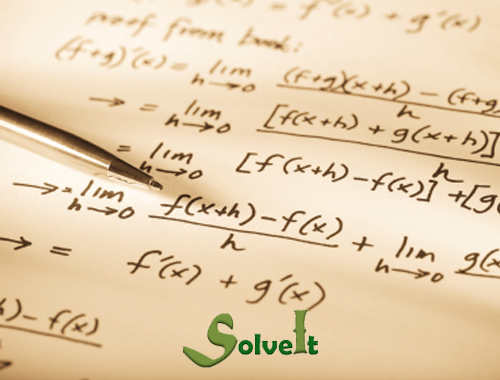 = f'(x) + g'(x)
proof from book:
(f+g)'(x) = lim h→0 (f+g)(x+h) − (f+g) / h
→ = lim h→0 [f(x+h) + g(x+h)] / h
= lim h→0 [f(x+h) − f(x)] + [g(
→ = lim h→0 f(x+h) − f(x) / h + lim h→0 g(x
→ = f'(x) + g'(x)
h) − f(x)
h
SolveIt